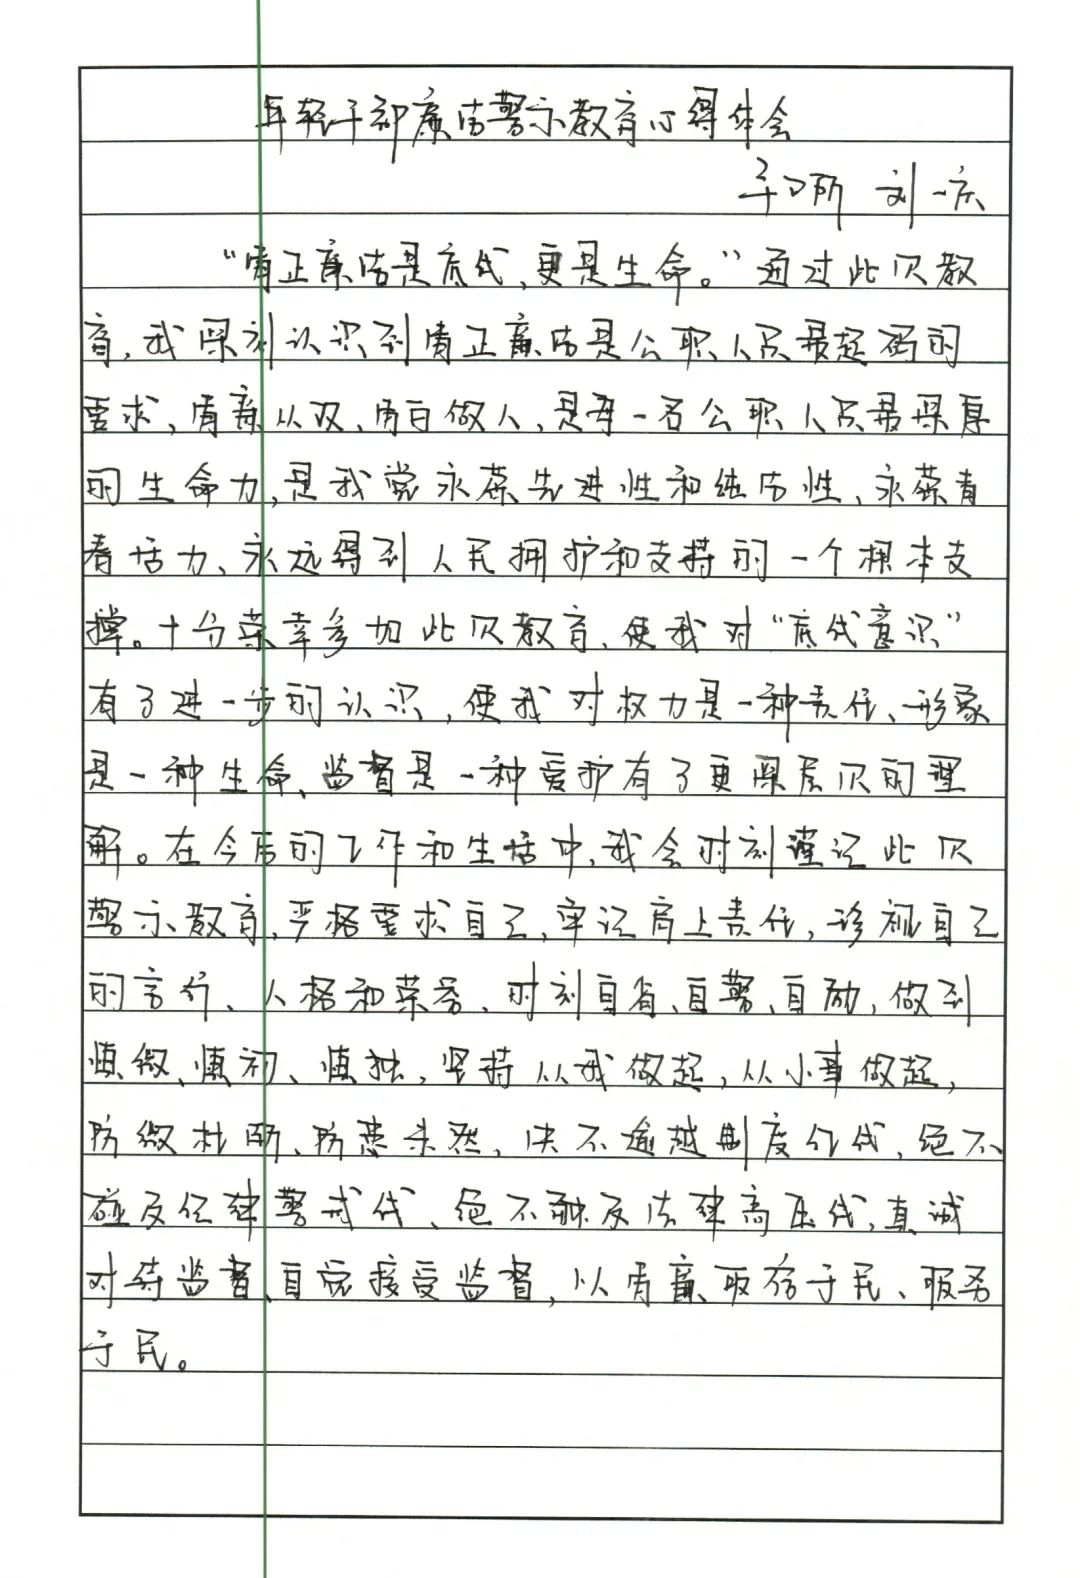 年轻干部廉洁警示教育心得体会
刘一庆
“清正廉洁是底线，更是生命。”通过此次教
育，我深刻认识到清正廉洁是公职人员最起码的
要求，清廉从政、清白做人，是每一名公职人员最深厚
的生命力，是我党永葆先进性和纯洁性、永葆青
春活力、永远得到人民拥护和支持的一个根本支
撑。十分荣幸参加此次教育，使我对“底线意识”
有了进一步的认识，使我对权力是一种责任、形象
是一种生命、监督是一种爱护有了更深层次的理
解。在今后的工作和生活中，我会时刻谨记此次
警示教育，严格要求自己，牢记肩上责任，珍视自己
的言行、人格和荣誉，时刻自省、自警、自励，做到
慎微、慎初、慎独，坚持从我做起，从小事做起，
防微杜渐、防患未然，决不逾越制度红线，绝不
碰及纪律警戒线、绝不触及法律高压线，真诚
对待监督、自觉接受监督，以清廉取信于民、服务
于民。